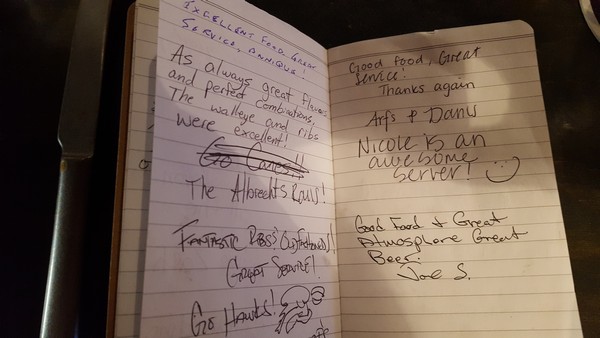 EXCELLENT FOOD, GREAT
SERVICE,
As always great flavors
and perfect combinations.
The walleye and ribs
were excellent!
Go Canes!!
The Albrechts Rolls!
FANTASTIC RIBS &
GREAT SERVICE!
GO HAWKS!
Good food, Great
Service!
Thanks again
Arfs &
Nicole is an
awesome
server!
Good Food & Great
Atmosphere Great
Beer!
Joe S.